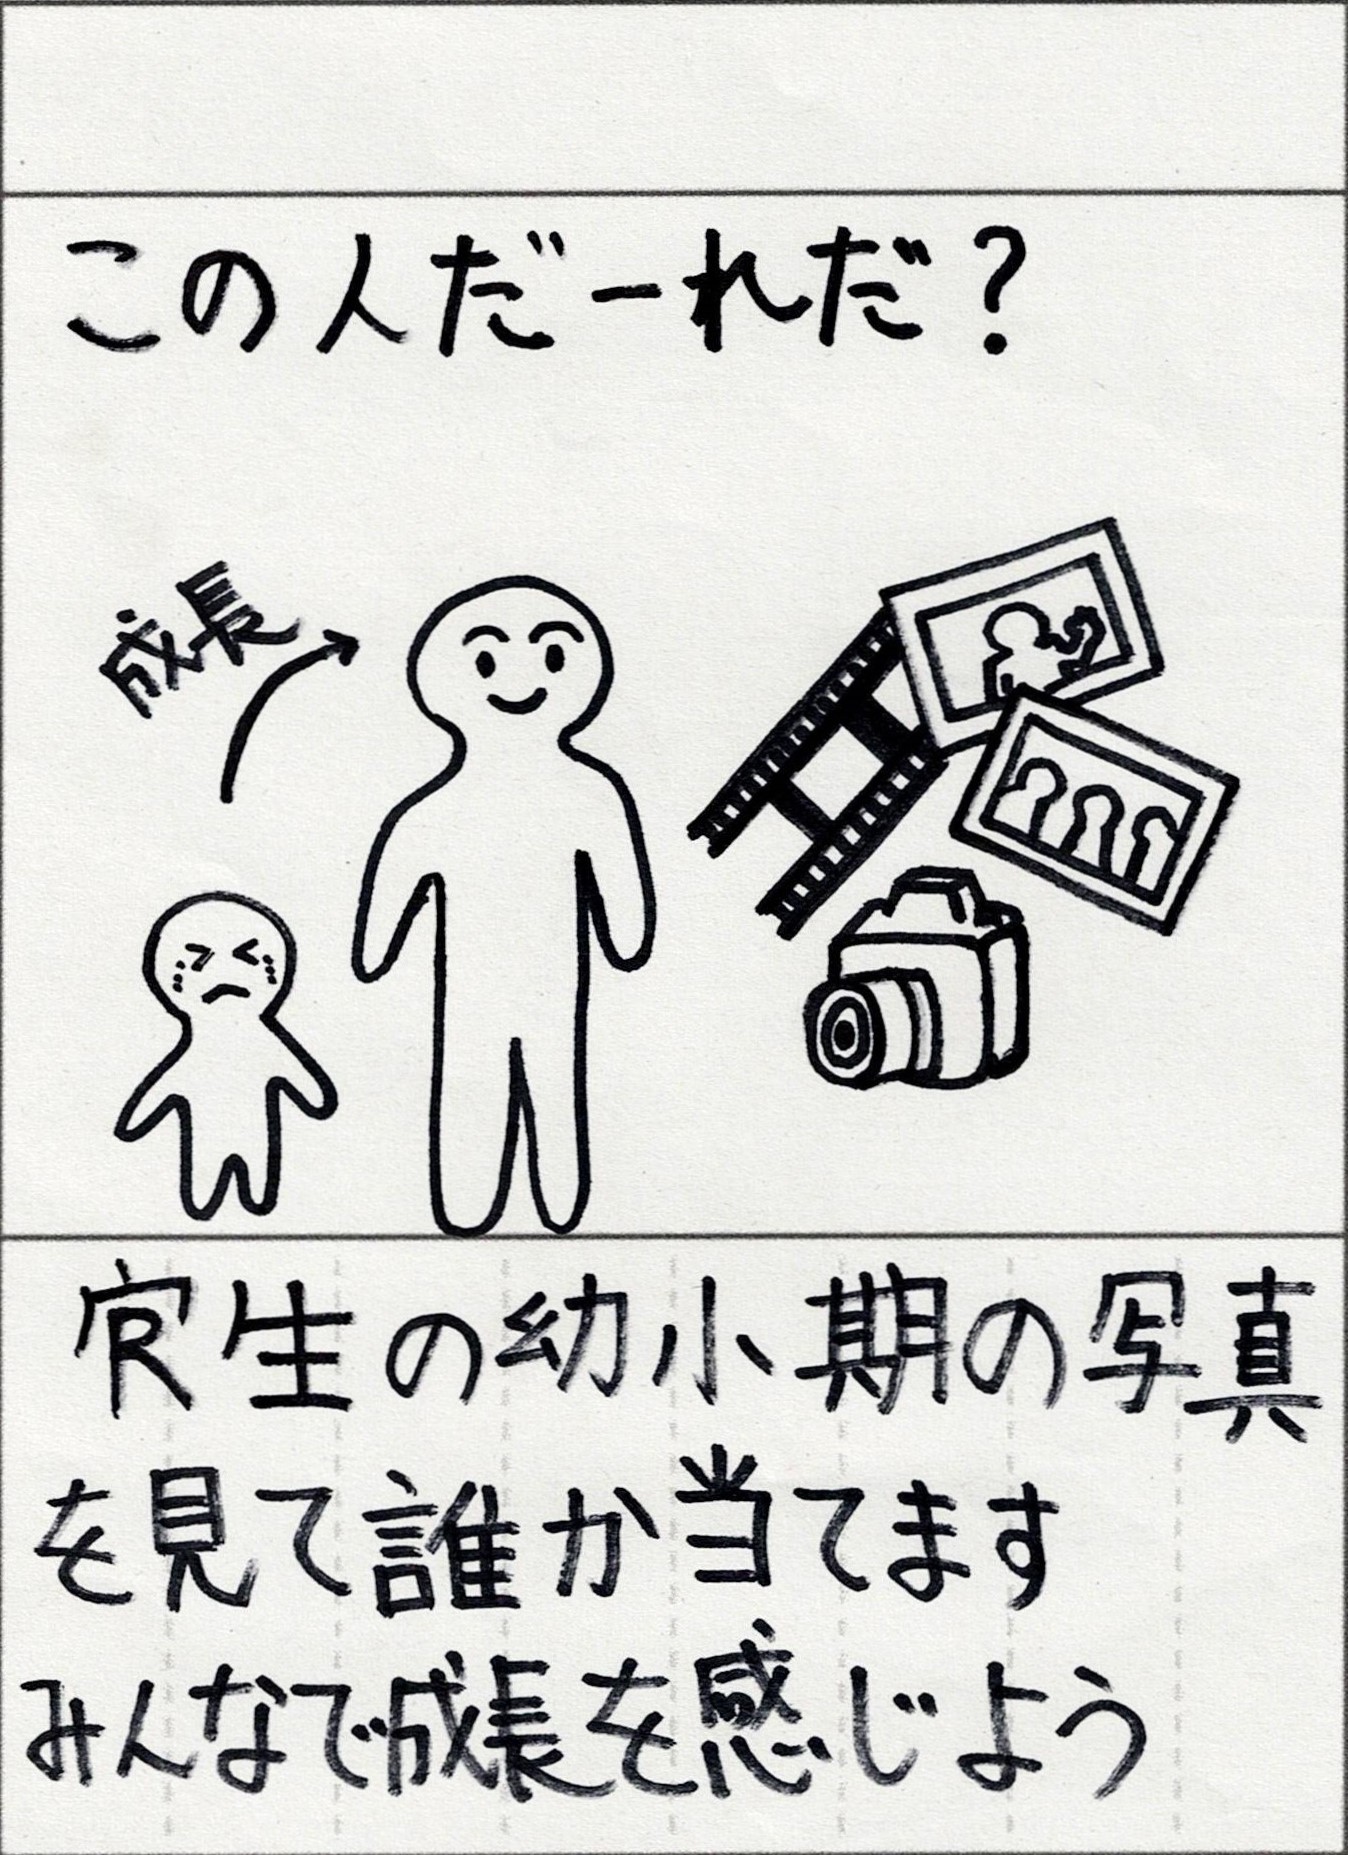 この人だーれだ?
成長
生の幼小期の写真
を見て誰か当てます
みんなで成長を感じよう